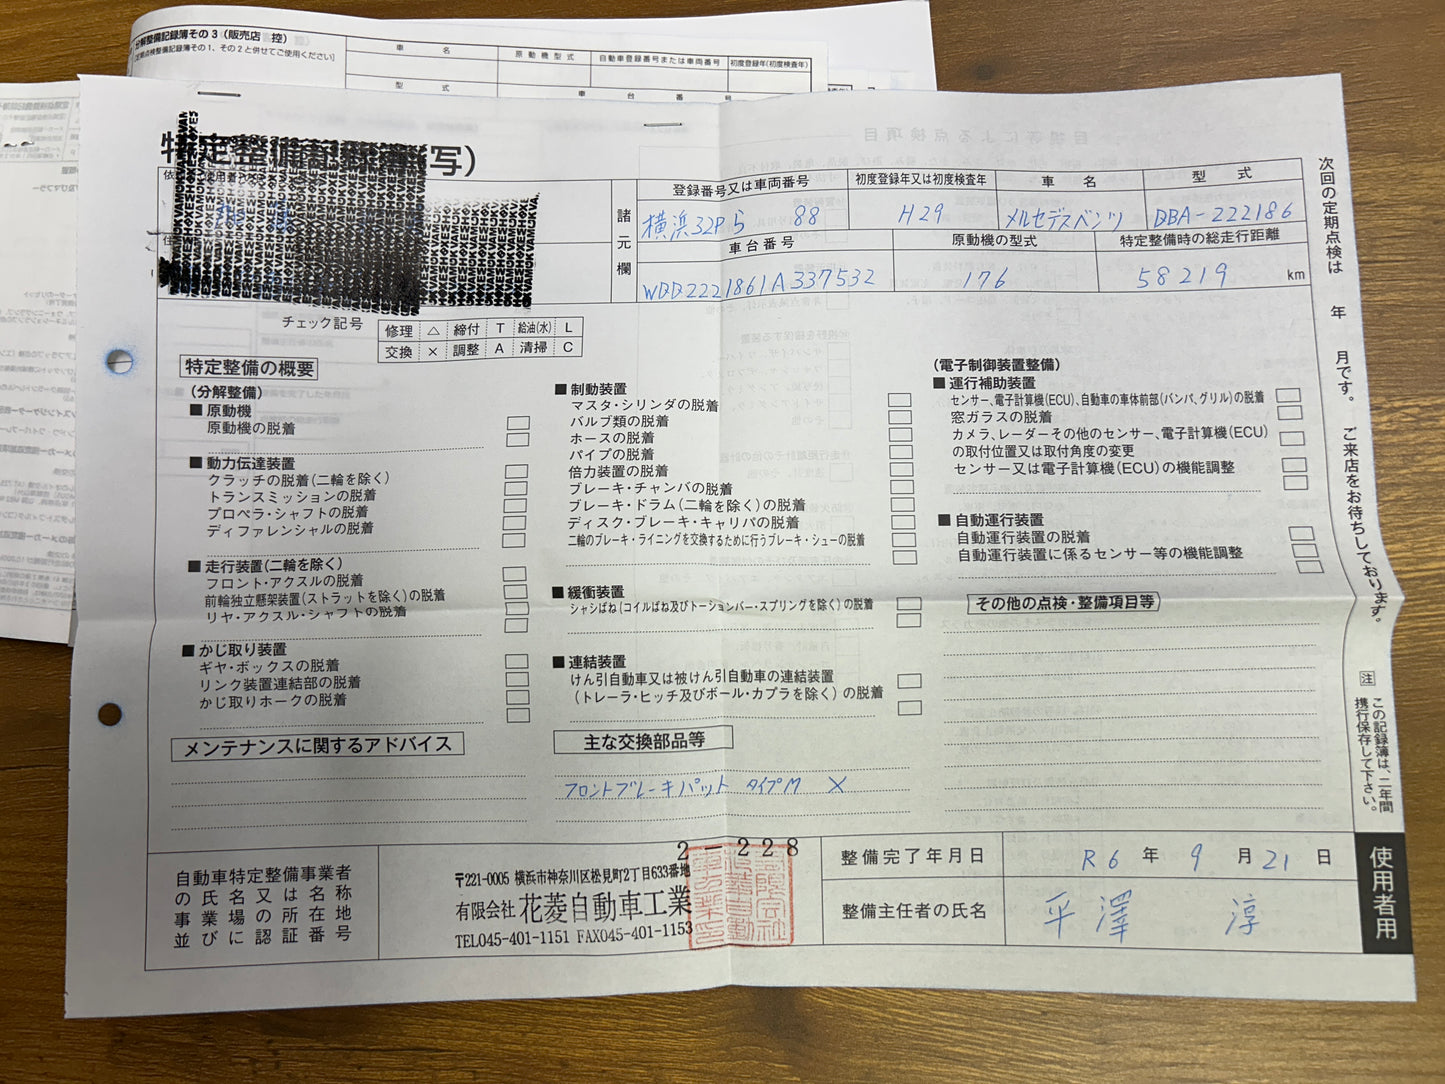 分解整備記録簿その3(販売店 控)
[定期点検整備記録簿その1、その2と併せてご使用ください]
車名
原動機型式
自動車登録番号または車両番号
初度登録年(初度検査年)
型式
車台番号
特定整備記録簿(写)
諸元欄
登録番号又は車両番号
初度登録年又は初度検査年
車名
型式
H29
メルセデスベンツ
DBA-222186
車台番号
原動機の型式
特定整備時の総走行距離
WDD2221861A337532
176
58219 km
チェック記号
修理 △ 締付 T 給油(水) L
交換 × 調整 A 清掃 C
特定整備の概要
(分解整備)
■ 原動機
原動機の脱着
■ 動力伝達装置
クラッチの脱着(二輪を除く)
トランスミッションの脱着
プロペラ・シャフトの脱着
ディファレンシャルの脱着
■ 走行装置(二輪を除く)
フロント・アクスルの脱着
前輪独立懸架装置(ストラットを除く)の脱着
リヤ・アクスル・シャフトの脱着
■ かじ取り装置
ギヤ・ボックスの脱着
リンク装置連結部の脱着
かじ取りホークの脱着
■ 制動装置
マスタ・シリンダの脱着
バルブ類の脱着
ホースの脱着
パイプの脱着
倍力装置の脱着
ブレーキ・チャンバの脱着
ブレーキ・ドラム(二輪を除く)の脱着
ディスク・ブレーキ・キャリパの脱着
二輪のブレーキ・ライニングを交換するために行うブレーキ・シューの脱着
■ 緩衝装置
シャシばね(コイルばね及びトーションバー・スプリングを除く)の脱着
■ 連結装置
けん引自動車又は被けん引自動車の連結装置
(トレーラ・ヒッチ及びボール・カプラを除く)の脱着
(電子制御装置整備)
■ 運行補助装置
センサー、電子計算機(ECU)、自動車の車体前部(バンパ、グリル)の脱着
窓ガラスの脱着
カメラ、レーダーその他のセンサー、電子計算機(ECU)
の取付位置又は取付角度の変更
センサー又は電子計算機(ECU)の機能調整
■ 自動運行装置
自動運行装置の脱着
自動運行装置に係るセンサー等の機能調整
その他の点検・整備項目等
メンテナンスに関するアドバイス
主な交換部品等
フロントブレーキパット タイプM ×
自動車特定整備事業者
の氏名又は名称
事業場の所在地
並びに認証番号
2-228
〒221-0005 横浜市神奈川区松見町2丁目633番地
有限会社 花菱自動車工業
TEL045-401-1151 FAX045-401-1153
整備完了年月日
R6 年 9 月 21 日
整備主任者の氏名
平澤 淳
次回の定期点検は 年 月です。ご来店をお待ちしております。
注 この記録簿は、二年間
携行保存して下さい。
使用者用